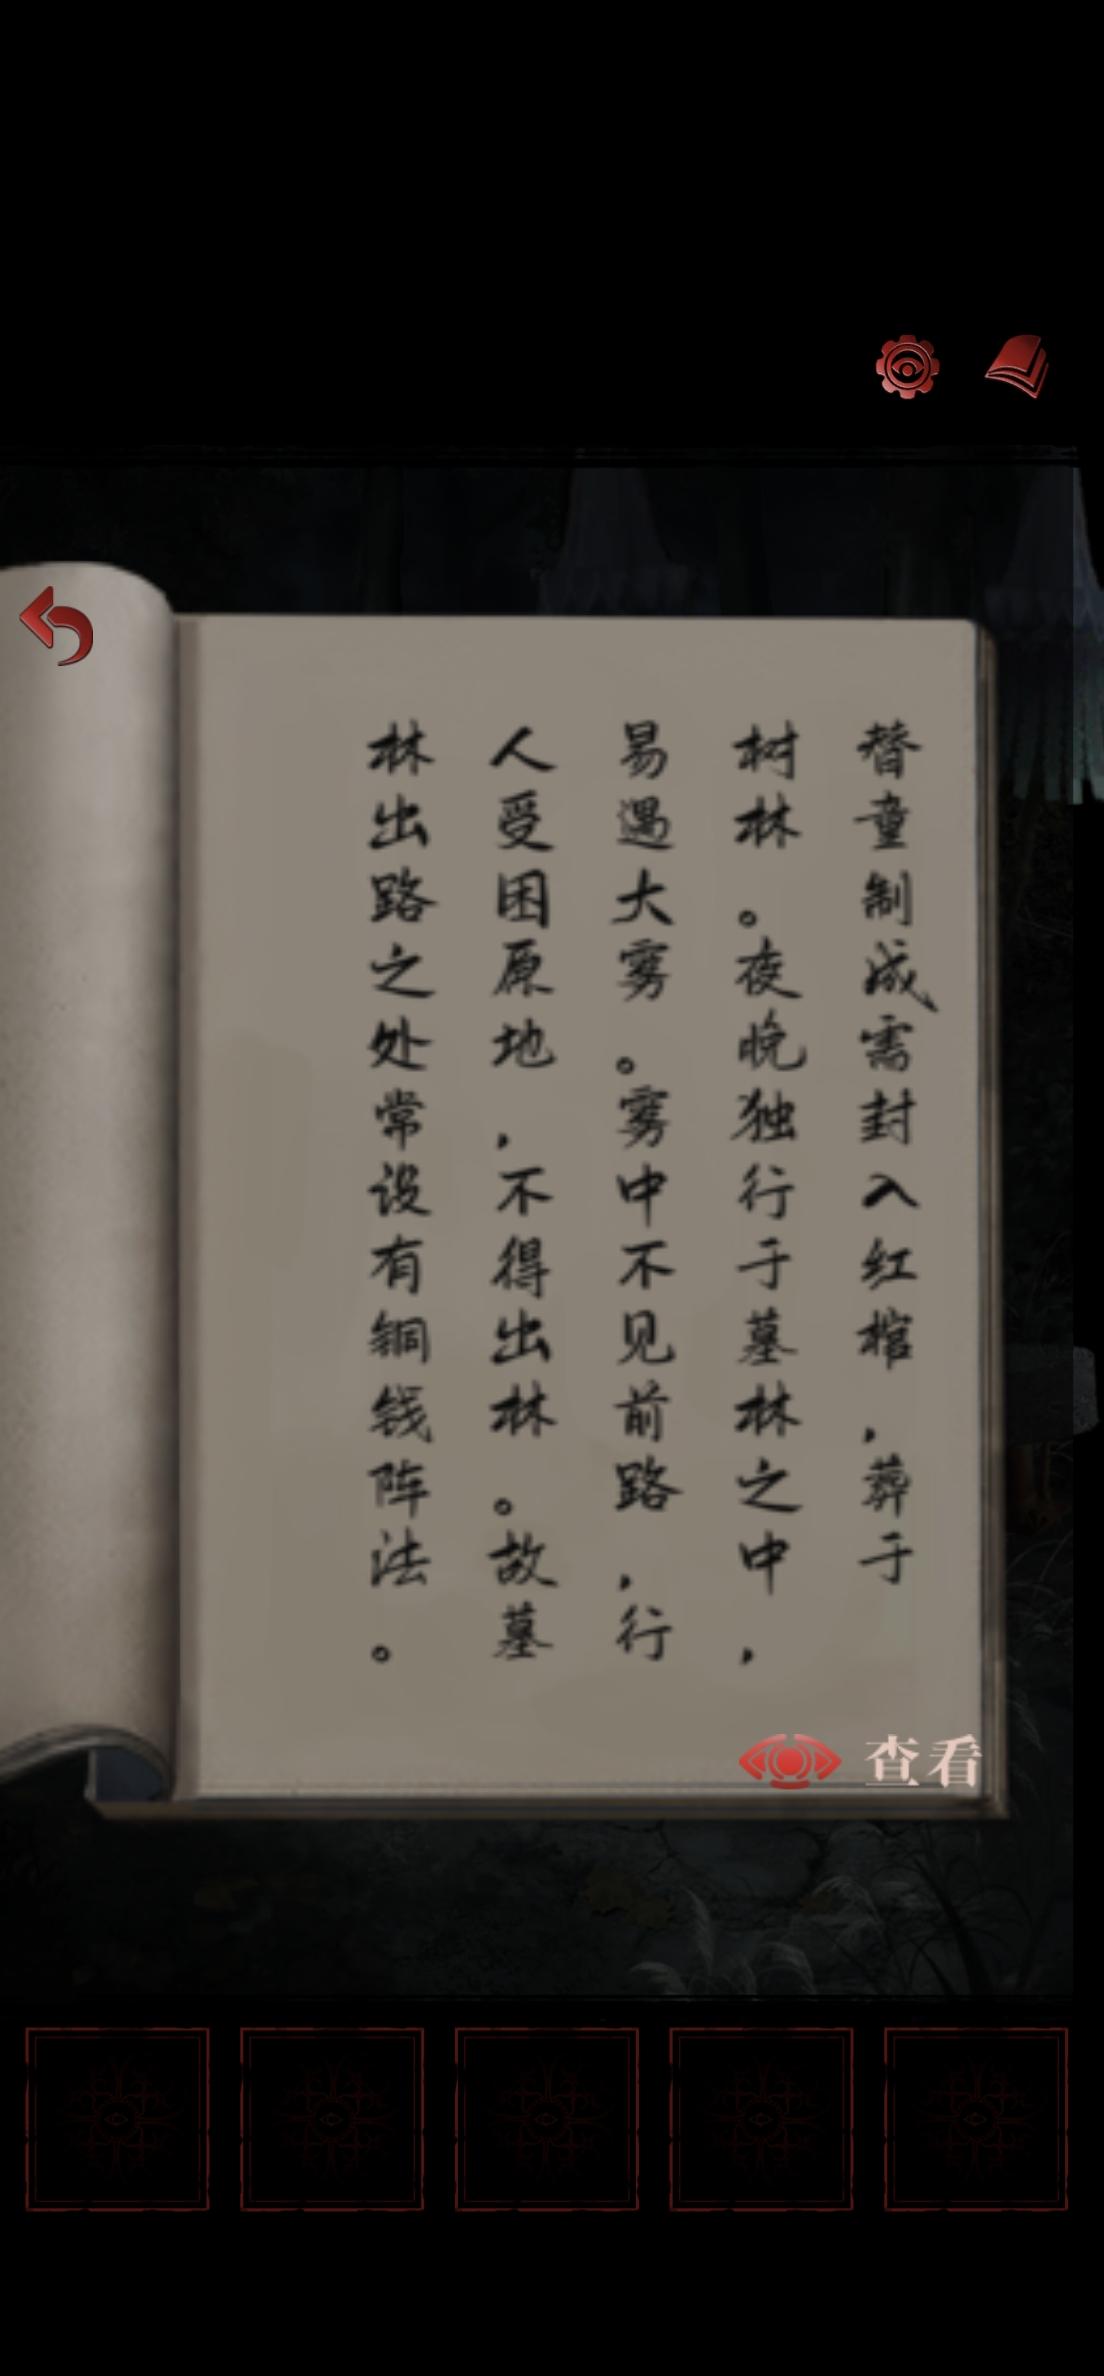 替童制成需封入红棺，葬于
树林。夜晚独行于墓林之中，
易遇大雾。雾中不见前路，行
人受困原地，不得出林。故墓
林出路之处常设有铜钱阵法。
查看